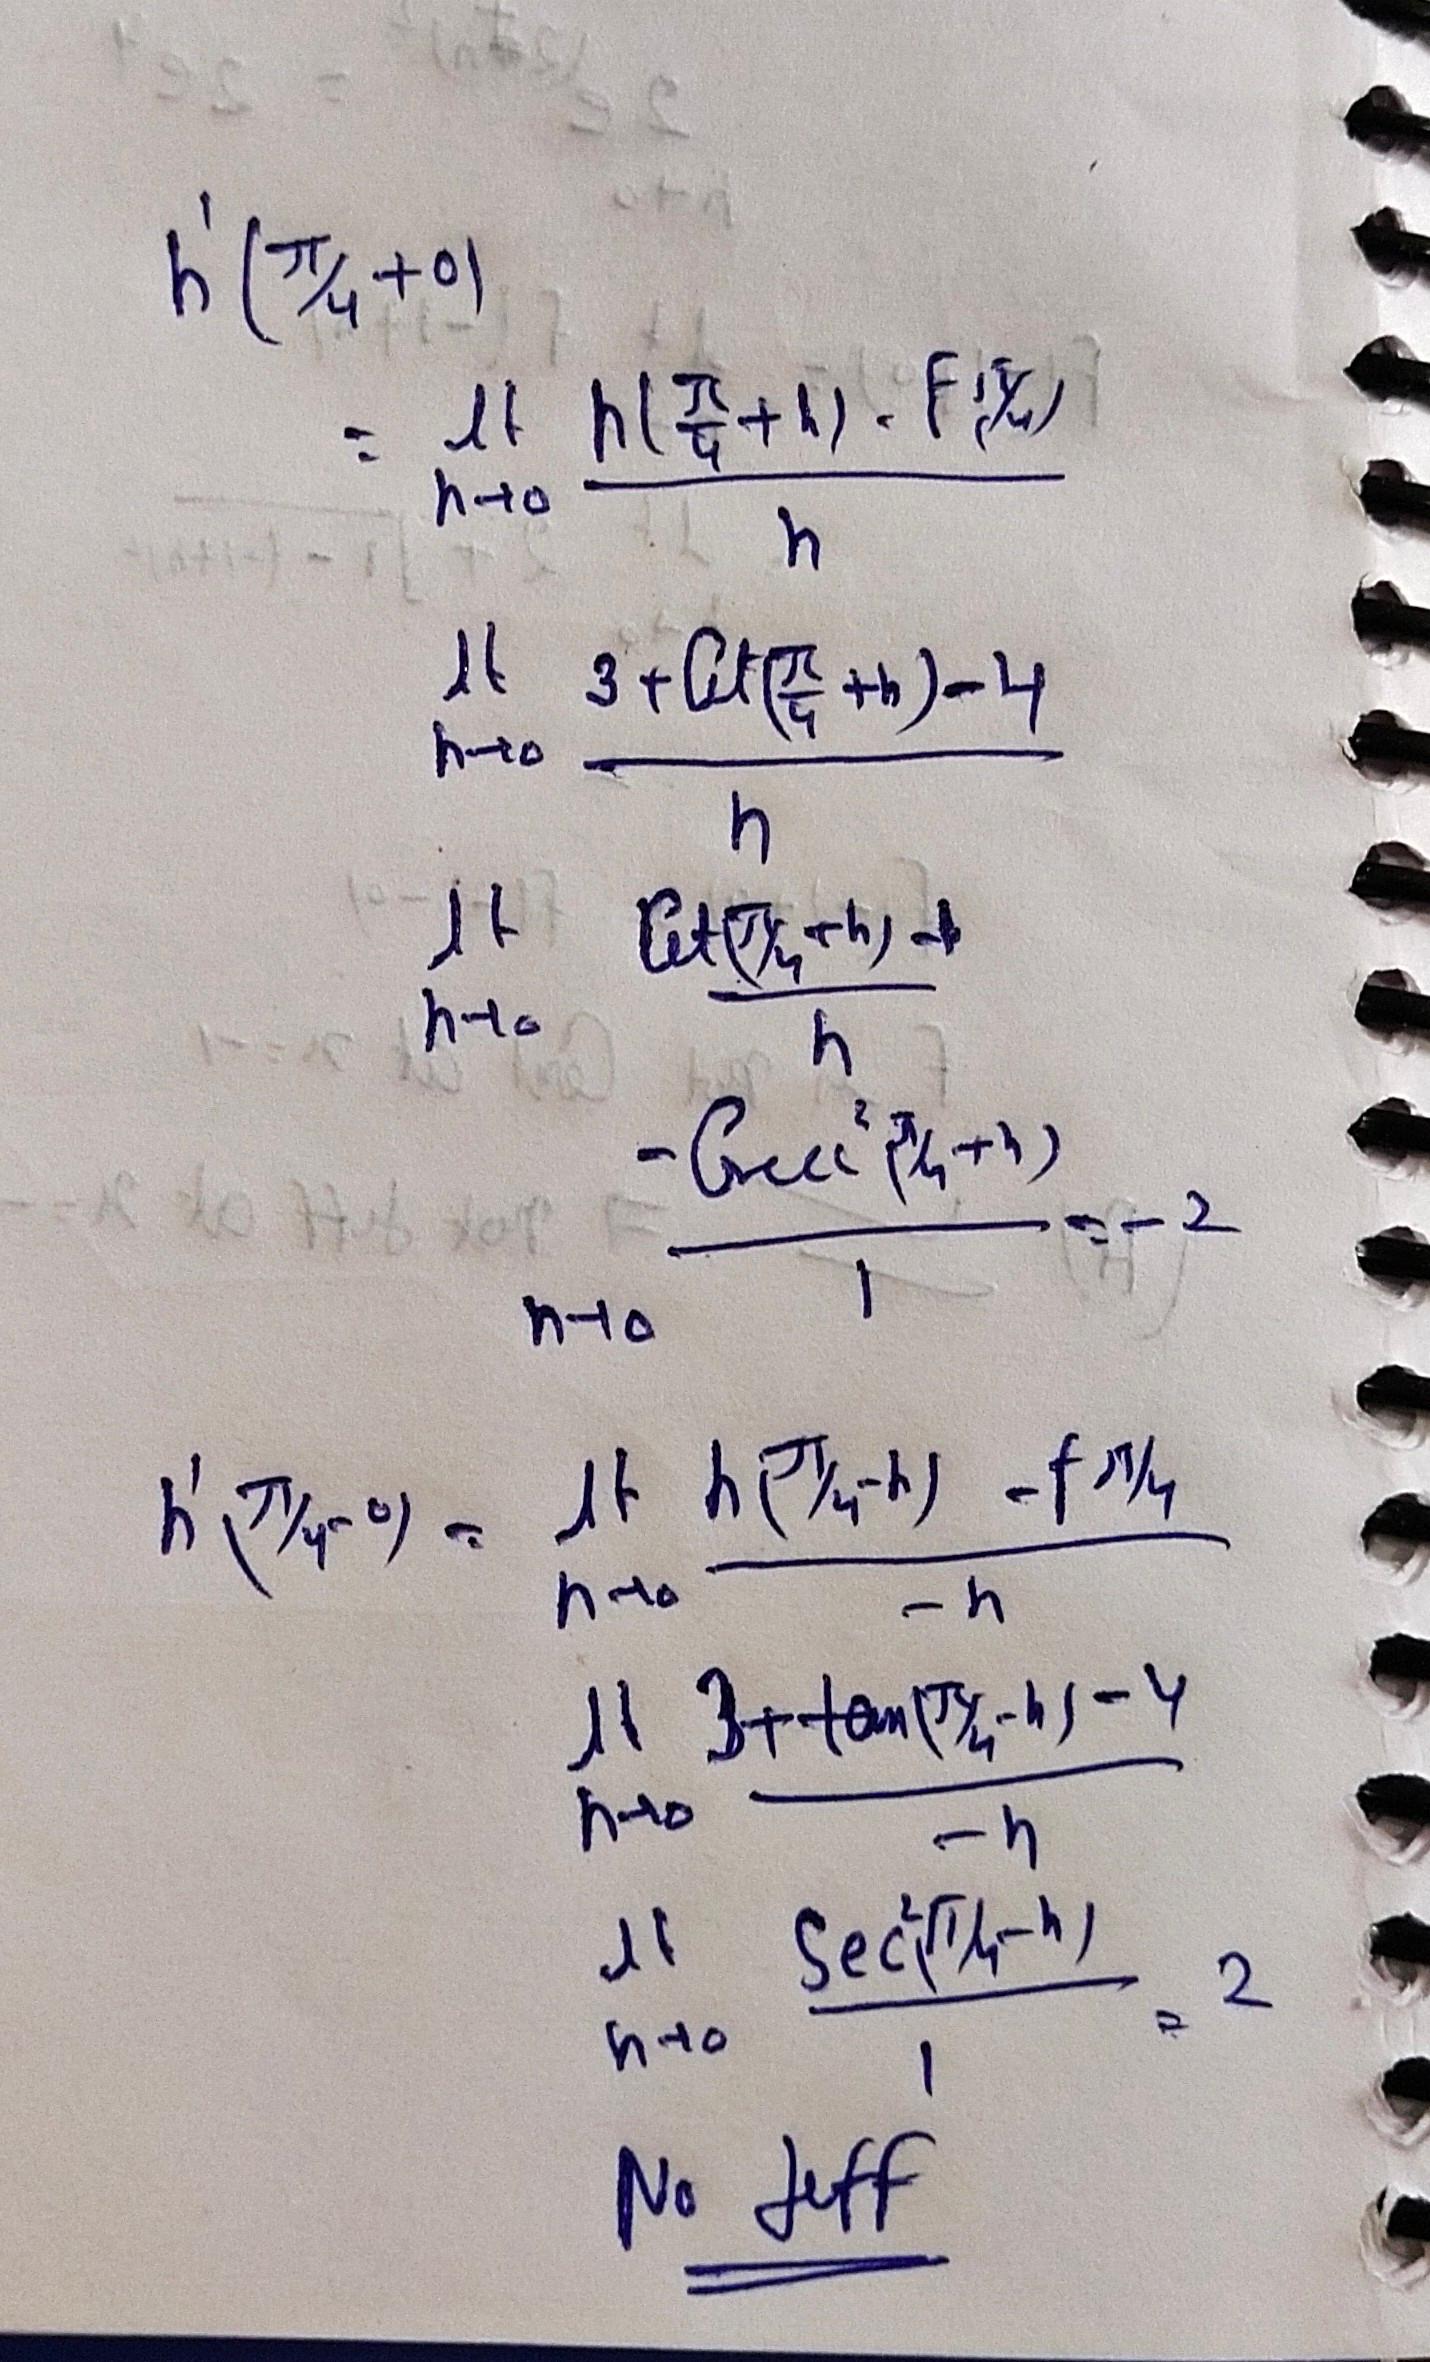 h'(π/4+0)
= lt h→0 h(π/4+h) - F(π/4) / h
lt h→0 3+Cot(π/4+h)-4 / h
lt h→0 Cot(π/4+h)-1 / h
h→0 -Cosec²(π/4+h) / 1 = -2
h'(π/4-0) = lt h→0 h(π/4-h) - f π/4 / -h
lt h→0 3+tan(π/4-h)-4 / -h
lt h→0 Sec²(π/4-h) / 1 = 2
No diff